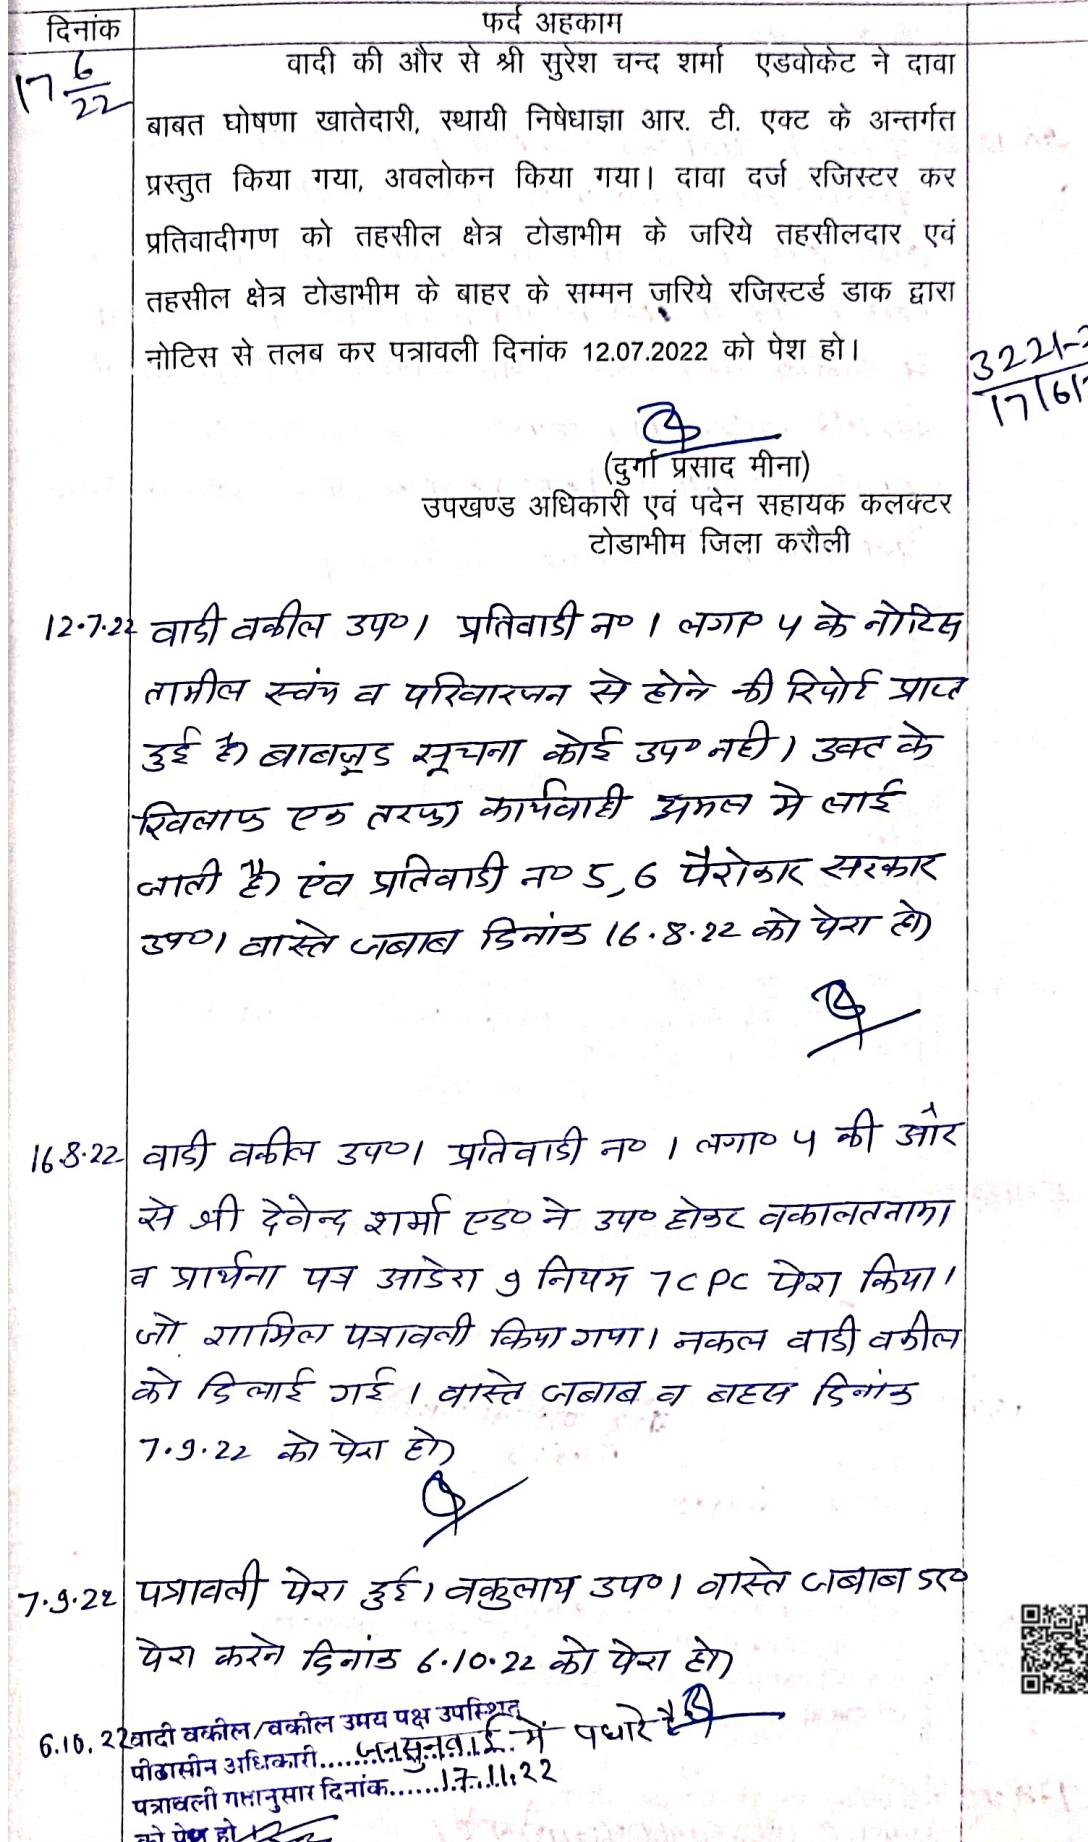 दिनांक
फर्द अहकाम
17 6/22
वादी की और से श्री सुरेश चन्द शर्मा एडवोकेट ने दावा
बाबत घोषणा खातेदारी, स्थायी निषेधाज्ञा आर. टी. एक्ट के अन्तर्गत
प्रस्तुत किया गया, अवलोकन किया गया। दावा दर्ज रजिस्टर कर
प्रतिवादीगण को तहसील क्षेत्र टोडाभीम के जरिये तहसीलदार एवं
तहसील क्षेत्र टोडाभीम के बाहर के सम्मन जरिये रजिस्टर्ड डाक द्वारा
नोटिस से तलब कर पत्रावली दिनांक 12.07.2022 को पेश हो।
3221-2
17/6/
(दुर्गा प्रसाद मीना)
उपखण्ड अधिकारी एवं पदेन सहायक कलक्टर
टोडाभीम जिला करौली
12.7.22 वादी वकील उप०। प्रतिवादी न० 1 लगा० 4 के नोटिस
तामील स्वंय व परिवारजन से होने की रिपोर्ट प्राप्त
हुई है। बाबजूद सूचना कोई उप० नही। उक्त के
खिलाफ एक तरफा कार्यवाही अमल मे लाई
जाती है। एंव प्रतिवादी न० 5,6 पैरोकार सरकार
उप०। वास्ते जबाब दिनांक 16.8.22 को पेश हो।
16.8.22 वादी वकील उप०। प्रतिवादी न० 1 लगा० 4 की और
से श्री देवेन्द शर्मा एड० ने उप० होकर वकालतनामा
व प्रार्थना पत्र आदेश 9 नियम 7 CPC पेश किया।
जो शामिल पत्रावली किया गया। नकल वादी वकील
को दिलाई गई। वास्ते जबाब व बहस दिनांक
7.9.22 को पेश हो।
7.9.22 पत्रावली पेश हुई। वकुलाय उप०। वास्ते जबाब
पेश करने दिनांक 6.10.22 को पेश हो।
6.10.22 वादी वकील/वकील उभय पक्ष उपस्थित
पीठासीन अधिकारी......जनसुनवाई में पधारे है।
पत्रावली गतानुसार दिनांक......17.11.22
को पेश हो